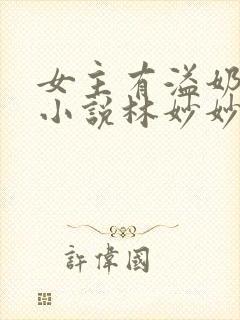 女主有溢奶
小説林妙妙
許偉國